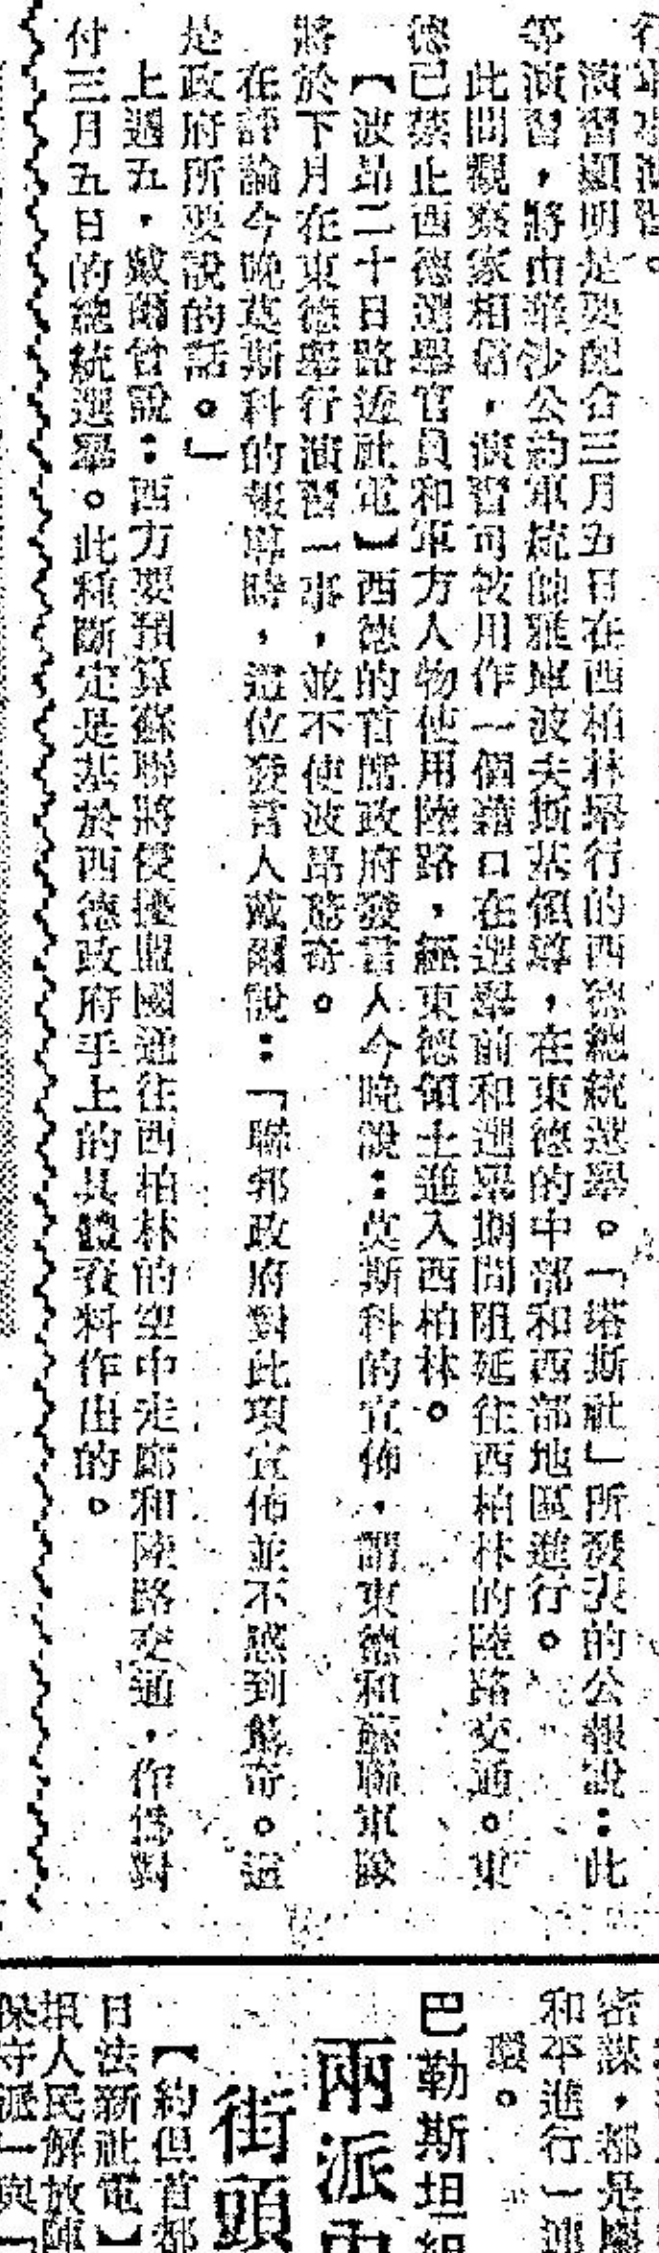 演習。
演習顯明是要配合三月五日在西柏林舉行的西德總統選舉。「塔斯社」所發表的公報說：此
等演習，將由華沙公約軍統帥雅庫波夫斯基領導，在東德的中部和西部地區進行。
此間觀察家相信，演習可被用作一個藉口在選舉前和選舉期間阻延往西柏林的陸路交通。東
德已禁止西德選舉官員和軍方人物使用陸路，經東德領土進入西柏林。
【波昂二十日路透社電】西德的首席政府發言人今晚說：莫斯科的宣佈，謂東德和蘇聯軍隊
將於下月在東德舉行演習一事，並不使波昂驚奇。
在評論今晚莫斯科的報導時，這位發言人戴爾說：「聯邦政府對此項宣佈並不感到驚奇。這
是政府所要說的話。」
上週五，戴爾曾說：西方要預算蘇聯將侵擾盟國通往西柏林的空中走廊和陸路交通，作為對
付三月五日的總統選舉。此種斷定是基於西德政府手上的具體資料作出的。
密謀，都是
和平進行一連
環。
巴勒斯坦組
兩派
街頭
【約但首都
日法新社電】
坦人民解放陣
保守派一與「